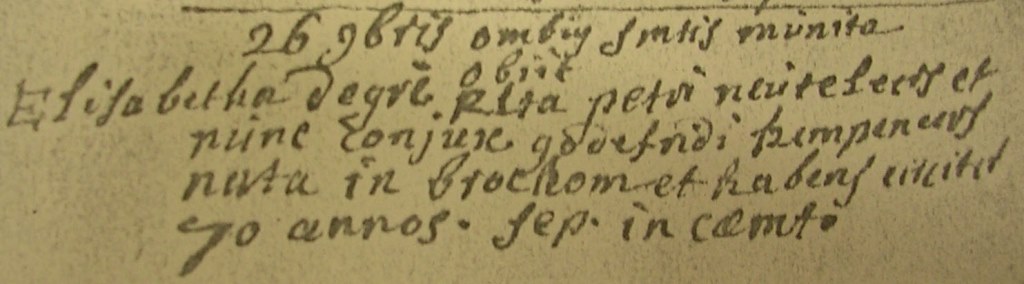 26 9bris ombiq smtis munita
obiit
Elisabetha Degré relta petri neuteleers et
nunc conjux godefridi kempeneers
nata in brochom et habens circiter
70 annos. sep. in cœmti